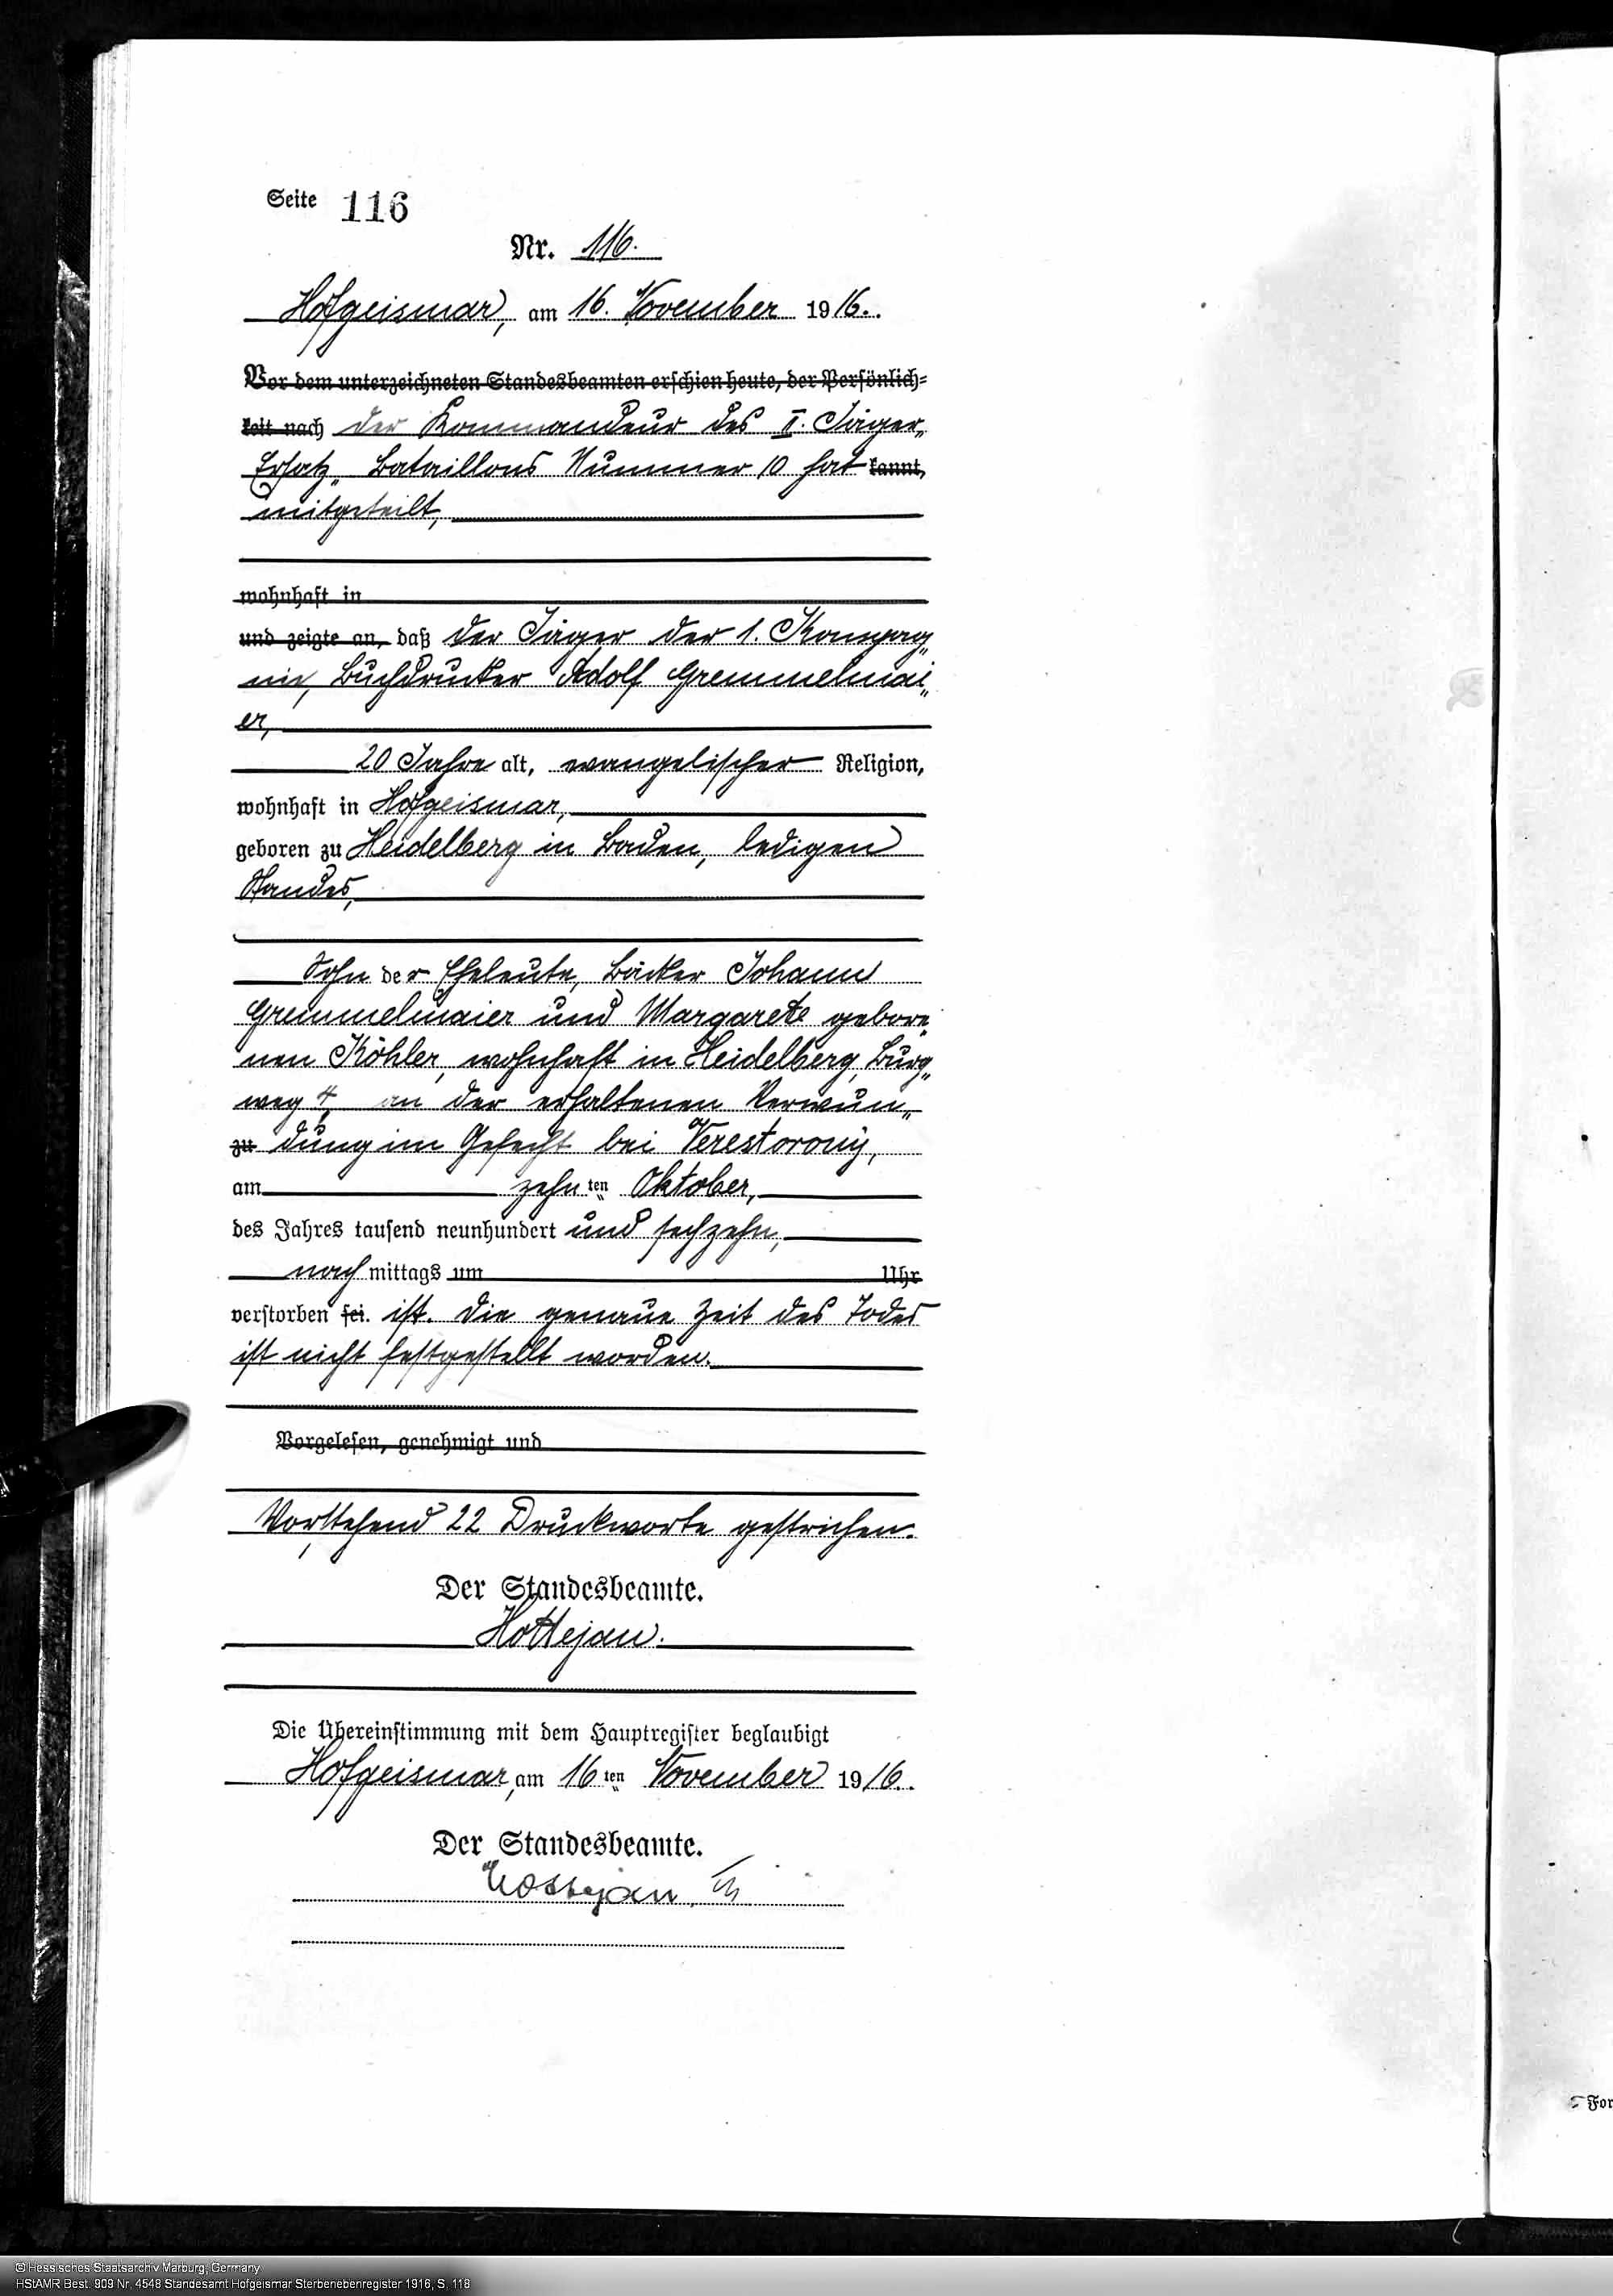 Seite 116
Nr. 116.
Hofgeismar, am 16. November 1916.
Vor dem unterzeichneten Standesbeamten erschien heute, der Persönlich=
keit nach der Kommandeur des II. Jäger„
Ersatz„ Bataillons Nummer 10 hat kannt,
mitgeteilt,
wohnhaft in
und zeigte an, daß der Jäger der 1. Kompag„
nie, Buchdrucker Adolf Gremmelmai„
er,
20 Jahre alt, evangelischer Religion,
wohnhaft in Hofgeismar,
geboren zu Heidelberg in Baden, ledigen
Standes,
Sohn der Eheleute, Bäcker Johann
Gremmelmaier und Margarete gebore„
nen Köhler, wohnhaft in Heidelberg, Burg„
weg 4, an der erhaltenen Verwun„
zu dung im Gefecht bei Verestorony,
am zehnten Oktober,
des Jahres tausend neunhundert und sechzehn,
nach mittags um Uhr
verstorben sei. ist. Die genaue Zeit des Todes
ist nicht festgestellt worden.
Vorgelesen, genehmigt und
Vorstehend 22 Druckworte gestrichen.
Der Standesbeamte.
Hottejan.
Die Übereinstimmung mit dem Hauptregister beglaubigt
Hofgeismar, am 16ten November 1916.
Der Standesbeamte.
Hottejan
For
© Hessisches Staatsarchiv Marburg, Germany
HStAMR Best. 909 Nr. 4548 Standesamt Hofgeismar Sterbenebenregister 1916, S. 118